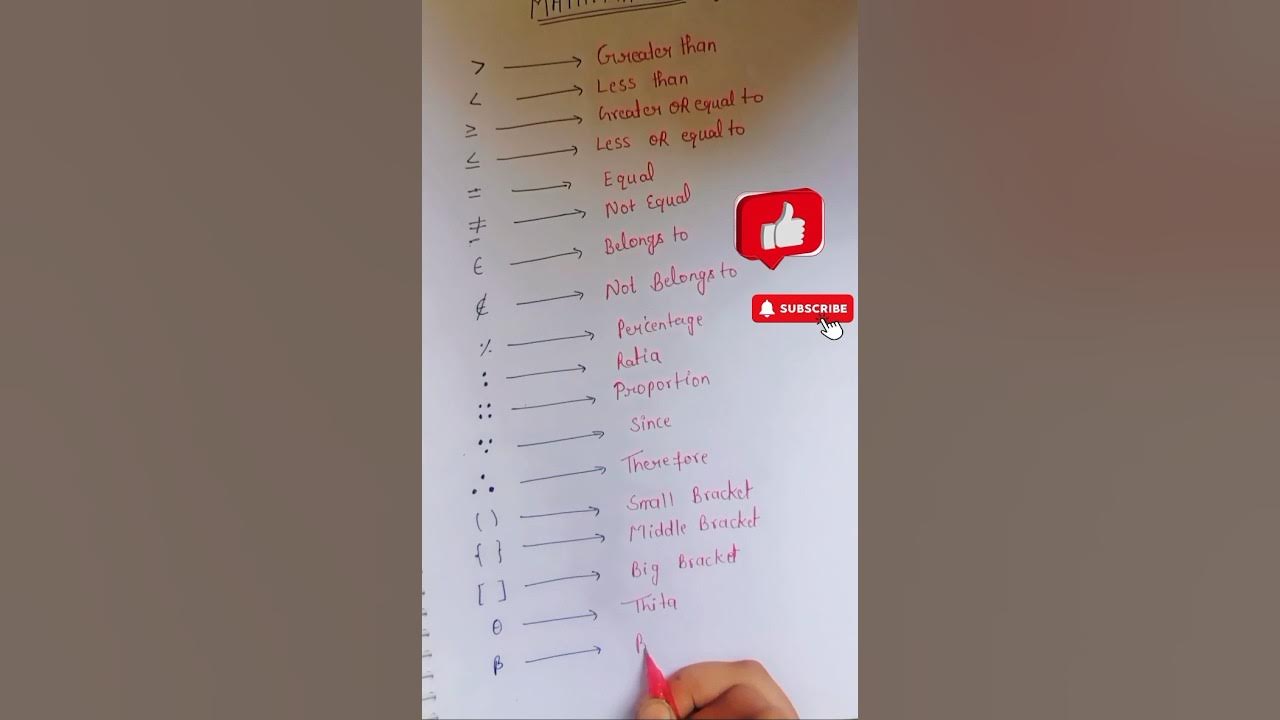 > → Greater than
< → Less than
≥ → Greater OR equal to
≤ → Less OR equal to
= → Equal
≠ → Not Equal
∈ → Belongs to
∉ → Not Belongs to
% → Percentage
: → Ratia
:: → Proportion
∵ → Since
∴ → Therefore
( ) → Small Bracket
{ } → Middle Bracket
[ ] → Big Bracket
θ → Thita
β →
SUBSCRIBE